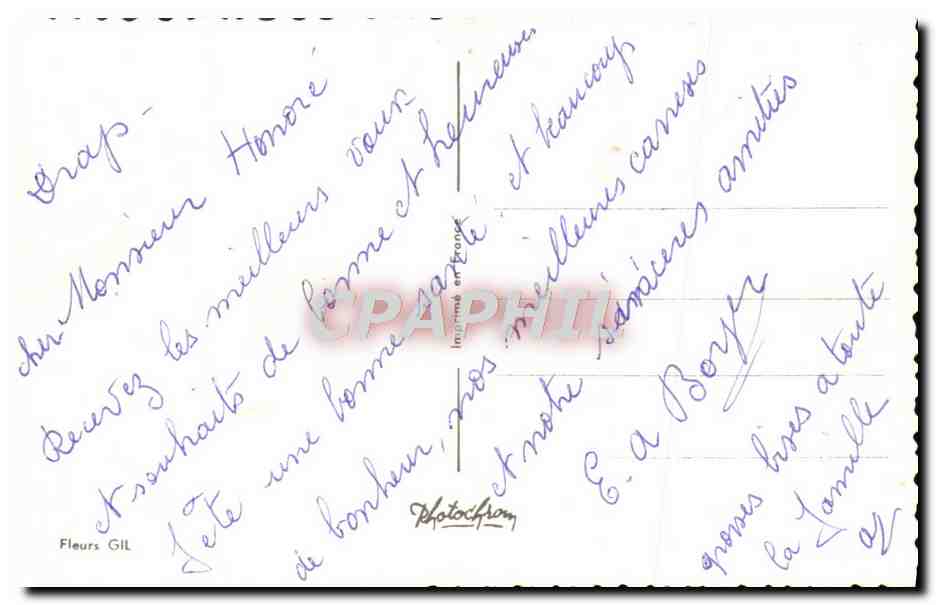 Drap -
cher Monsieur Honoré
Recevez les meilleurs vœux
et souhaits de bonne et heureuses
fête une bonne santé et beaucoup
de bonheur, nos meilleures caresses
et notre sincères amitiés
E. A Boyer
grosses bises a toute
la famille
Imprimé en France
CPAPHIL
Photochrom
Fleurs GIL